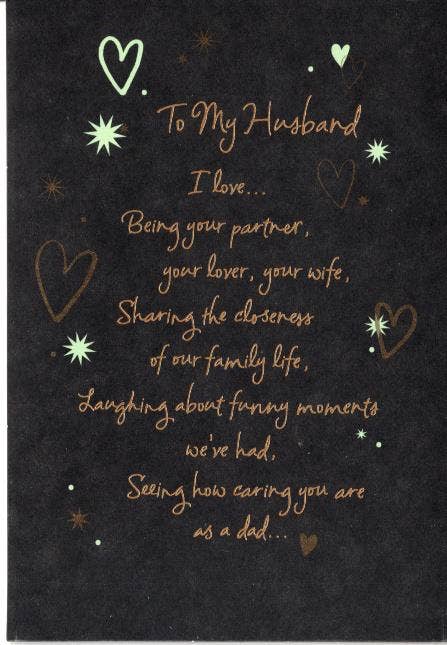 To My Husband
I love...
Being your partner,
your lover, your wife,
Sharing the closeness
of our family life,
Laughing about funny moments
we've had,
Seeing how caring you are
as a dad...